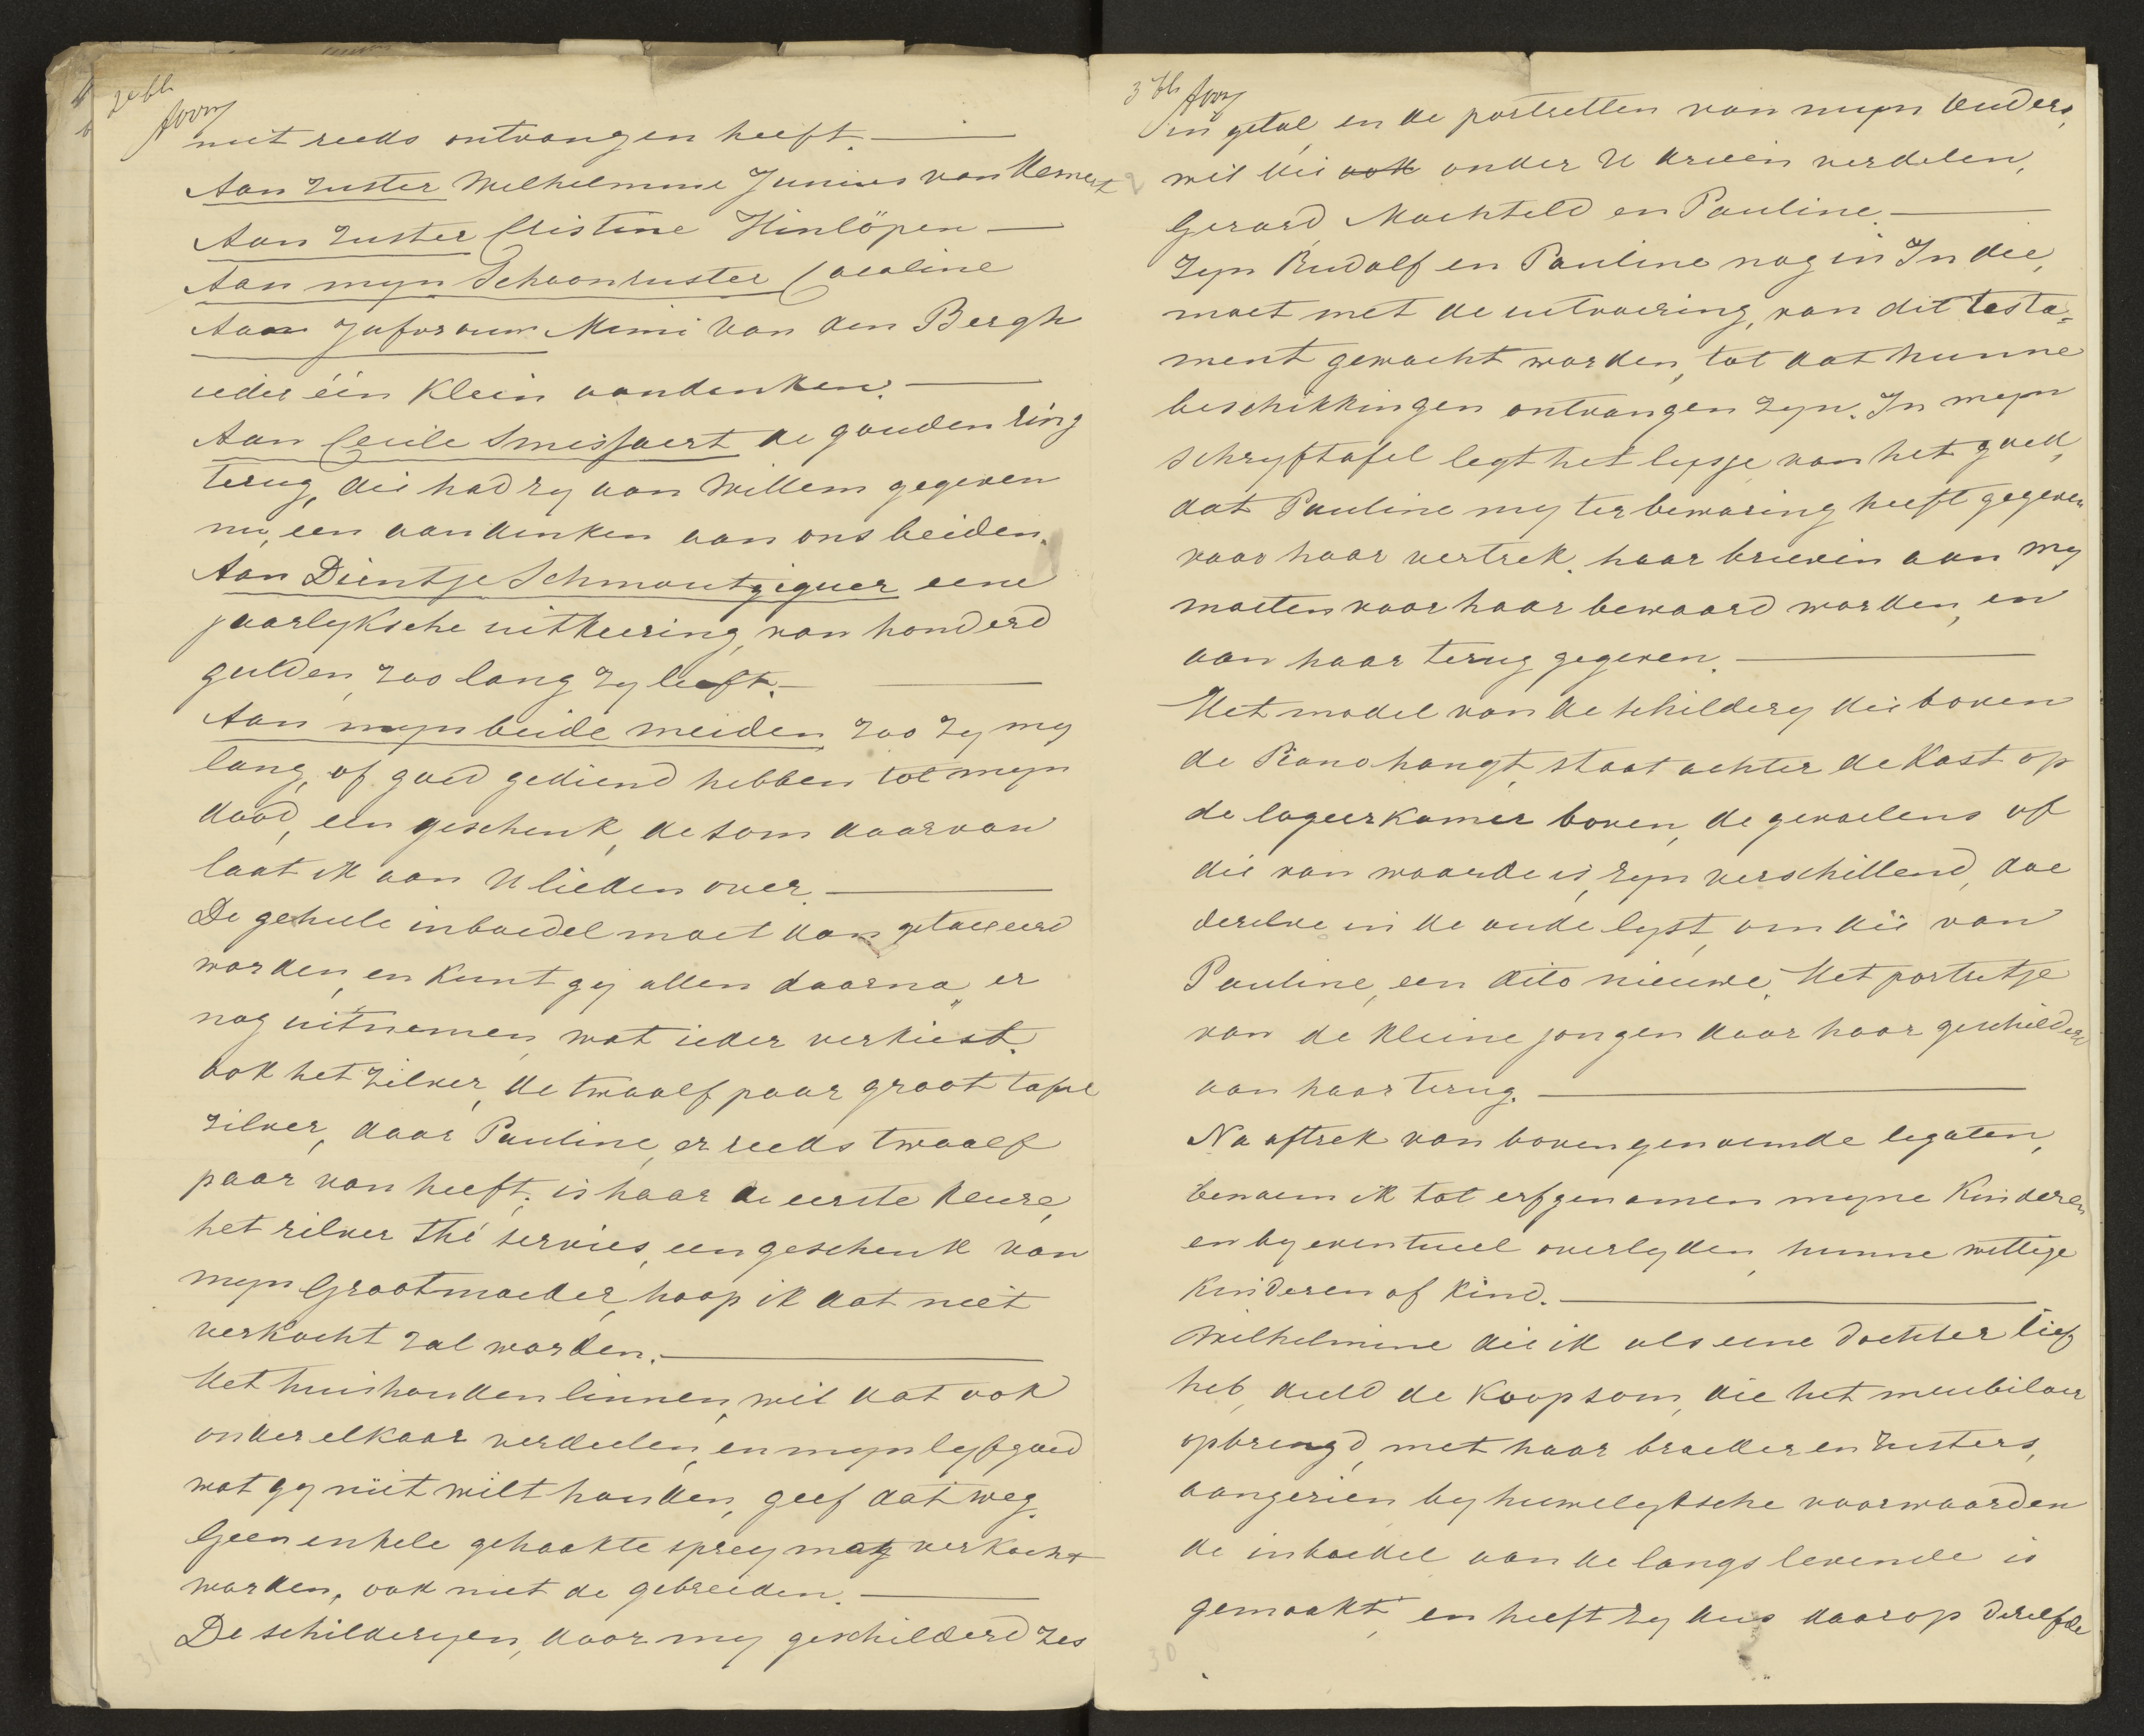 2e bl
niet reeds ontvangen heeft. —
Aan zuster Wilhelmine Junius van Hemert
Aan zuster Cristine Hinlöpen —
Aan myn Schoonzuster Caroline
Aan Jufvrouw Mimi van den Bergh
ieder één klein aandenken. —
Aan Cecile Smissaert de gouden ring
terug, die had zy aan Willem gegeven
nu, een aandenken aan ons beiden.
Aan Dientje Schmoutziguer eene
jaarlyksche uitkeering, van honderd
gulden, zoo lang zy leeft. —
Aan myn beide meiden zoo zy my
lang, of goed gediend hebben tot myn
dood, een geschenk, de som daarvan
laat ik aan U lieden over. —
De geheele inboedel moet dan getaxeerd
worden, en kunt gy allen daarna, er
nog uitnemen, wat ieder verkiest.
ook het zilver, de twaalf paar groot tafel
zilver, daar Pauline, er reeds twaalf
paar van heeft, is haar de eerste keure,
het zilver thé servies, een geschenk van
myn Grootmoeder, hoop ik dat niet
verkocht zal worden. —
Het huishouden linnen, wil dat ook
onder elkaar verdeelen, en myn lyfgoed
wat gy niet wilt houden, geef dat weg.
Geen enkele gehaakte sprey mag verkocht
worden, ook niet de gebreiden. —
De schilderyen, door my geschilderd zes
31
3 bl
in getal, en de portretten van myn Ouders,
wil die ook onder U drieën verdelen,
Gerard, Machteld en Pauline. —
Zyn Rudolf en Pauline nog in Indie,
moet met de uitvoering, van dit testa=
ment gewacht worden, tot dat hunne
beschikkingen ontvangen zyn. In myn
schryftafel legt het lysje van het goed,
dat Pauline my ter bewaring heeft gegeven
voor haar vertrek. haar brieven aan my
moeten voor haar bewaard worden, en
aan haar terug gegeven. —
Het model van de schildery die boven
de Piano hangt, staat achter de Kast op
de logeerkamer boven, de gevoelens of
die van waarde is, zyn verschillend, doe
dezelve in de oude lyst, om die van
Pauline, een dito nieuwe. Het portretje
van de kleine jongen door haar geschilderd
aan haar terug. —
Na aftrek van bovengenoemde legaten,
benoem ik tot erfgenamen myne Kinderen
en by eventueel overlyden, hunne wettige
Kinderen of kind. —
Wilhelmine die ik als eene dochter lief
heb, deeld de Koopsom, die het meubilair
opbrengd, met haar broeder en zusters,
aangezien by huwelyksche voorwaarden
de inboedel aan de langs levende is
gemaakt, en heeft zy dus daarop dezelfde
30